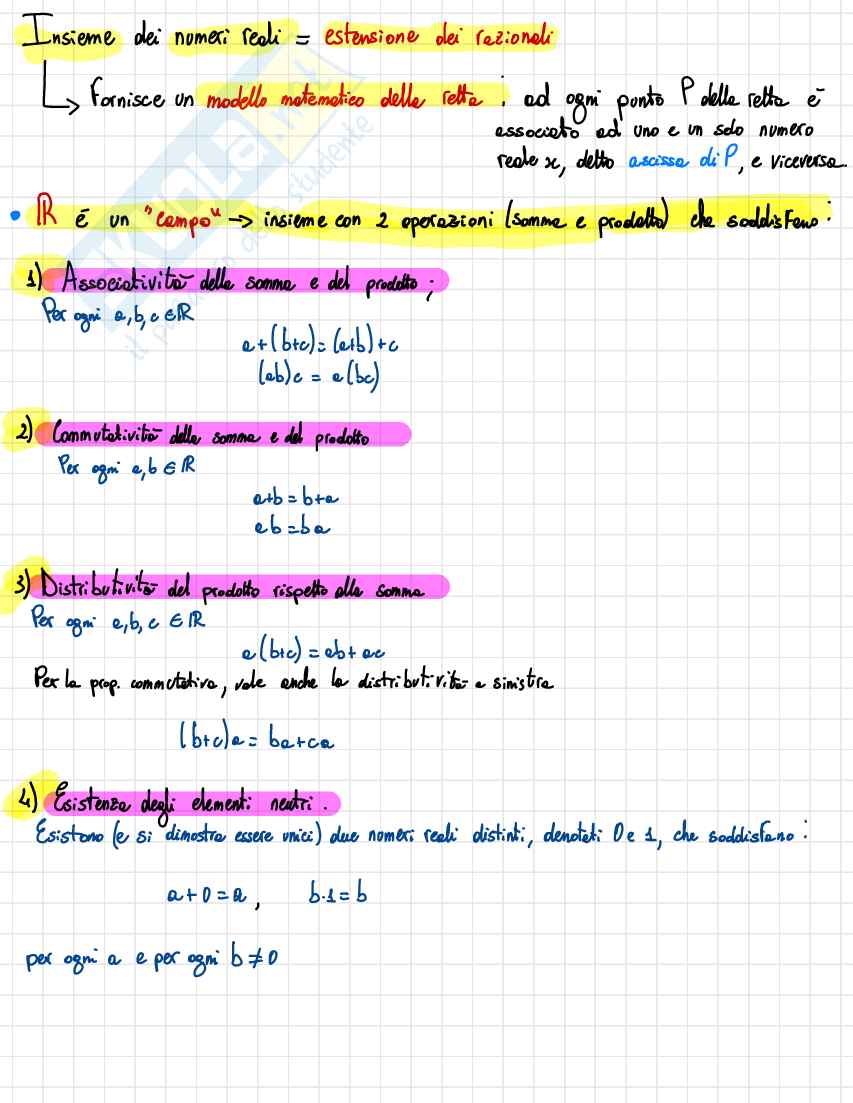 Insieme dei numeri reali = estensione dei razionali
Fornisce un modello matematico della retta : ad ogni punto P della retta è
associato ad uno e un solo numero
reale x, detto ascissa di P, e viceversa.
• ℝ è un "campo" → insieme con 2 operazioni (somma e prodotto) che soddisfano :
1) Associatività della somma e del prodotto ;
Per ogni a, b, c ∈ ℝ
a + (b+c) = (a+b) + c
(ab)c = a(bc)
2) Commutatività della somma e del prodotto
Per ogni a, b ∈ ℝ
a+b = b+a
ab = ba
3) Distributività del prodotto rispetto alla somma
Per ogni a, b, c ∈ ℝ
a (b+c) = ab + ac
Per la prop. commutativa, vale anche la distributività a sinistra
(b+c)a = ba+ca
4) Esistenza degli elementi neutri .
Esistono (e si dimostra essere unici) due numeri reali distinti, denotati 0 e 1, che soddisfano :
a + 0 = a , b·1 = b
per ogni a e per ogni b ≠ 0
SKUOLA.net
il paradiso dello studente